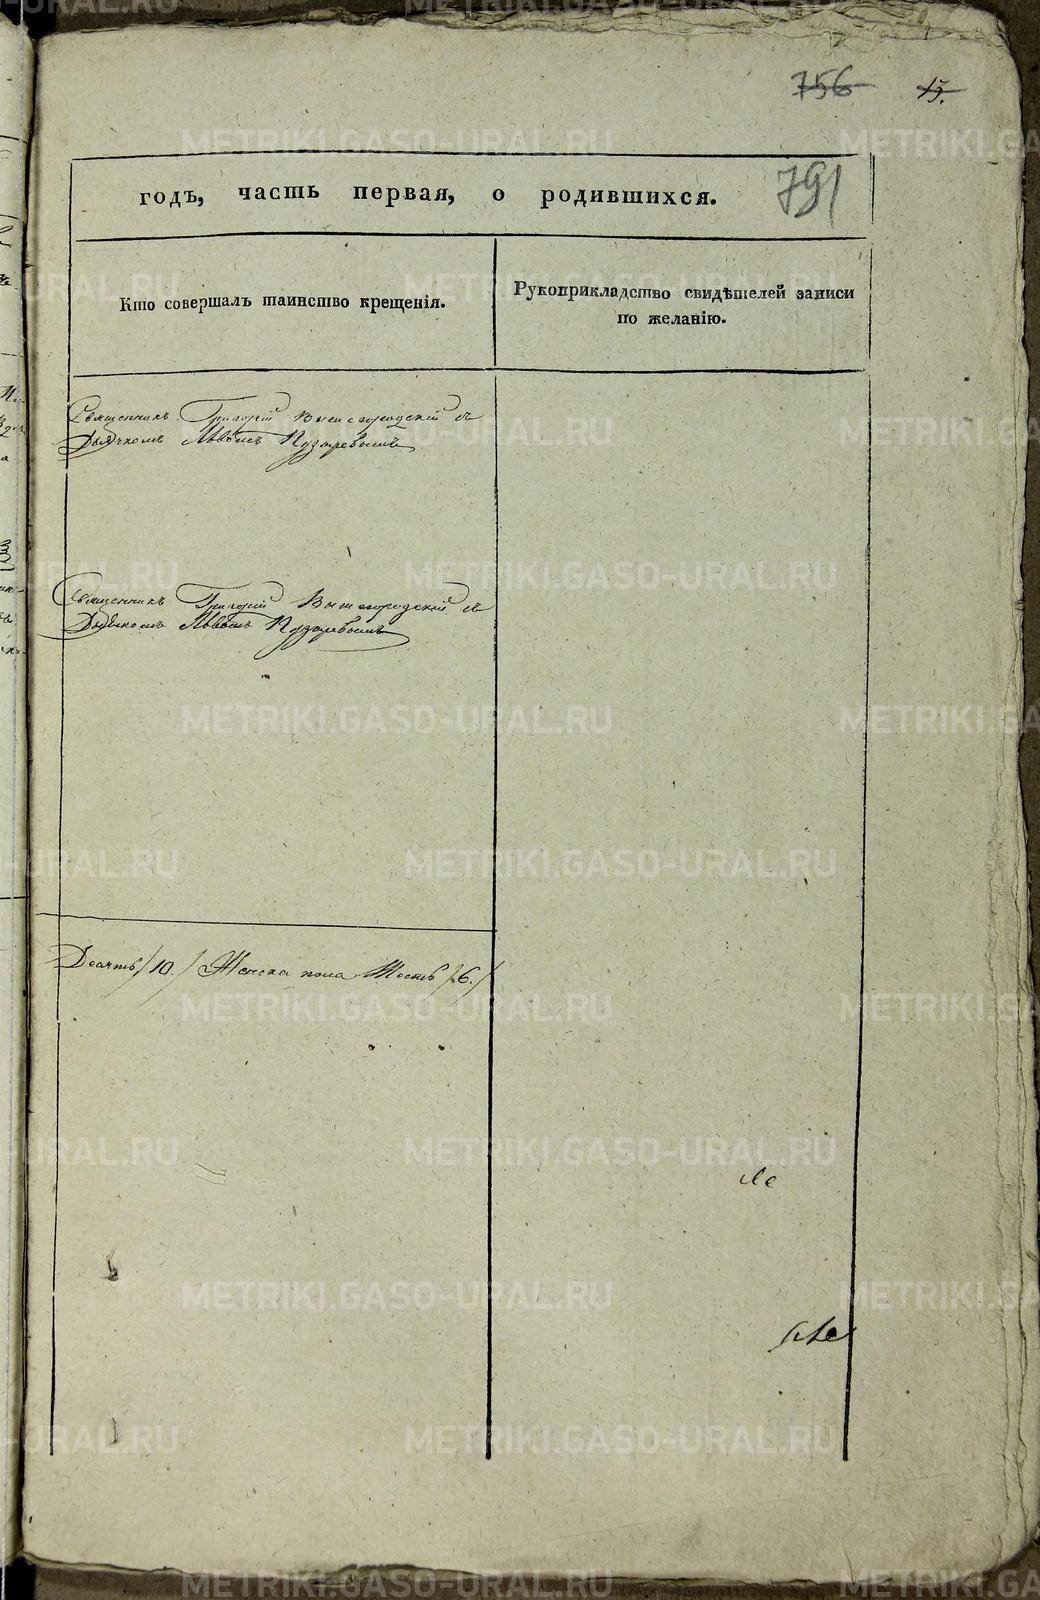 756 13.
791
годъ, часть первая, о родившихся.
Кто совершалъ таинство крещенія.
Рукоприкладство свидѣтелей записи
по желанію.
Священникъ Григорій Вышегородскій съ
Дьячкомъ Львомъ Пузыревымъ
Священникъ Григорій Вышегородскій съ
Дьячкомъ Львомъ Пузыревымъ
Десять /10./ Женска пола Шесть /6./
METRIKI.GASO-URAL.RU